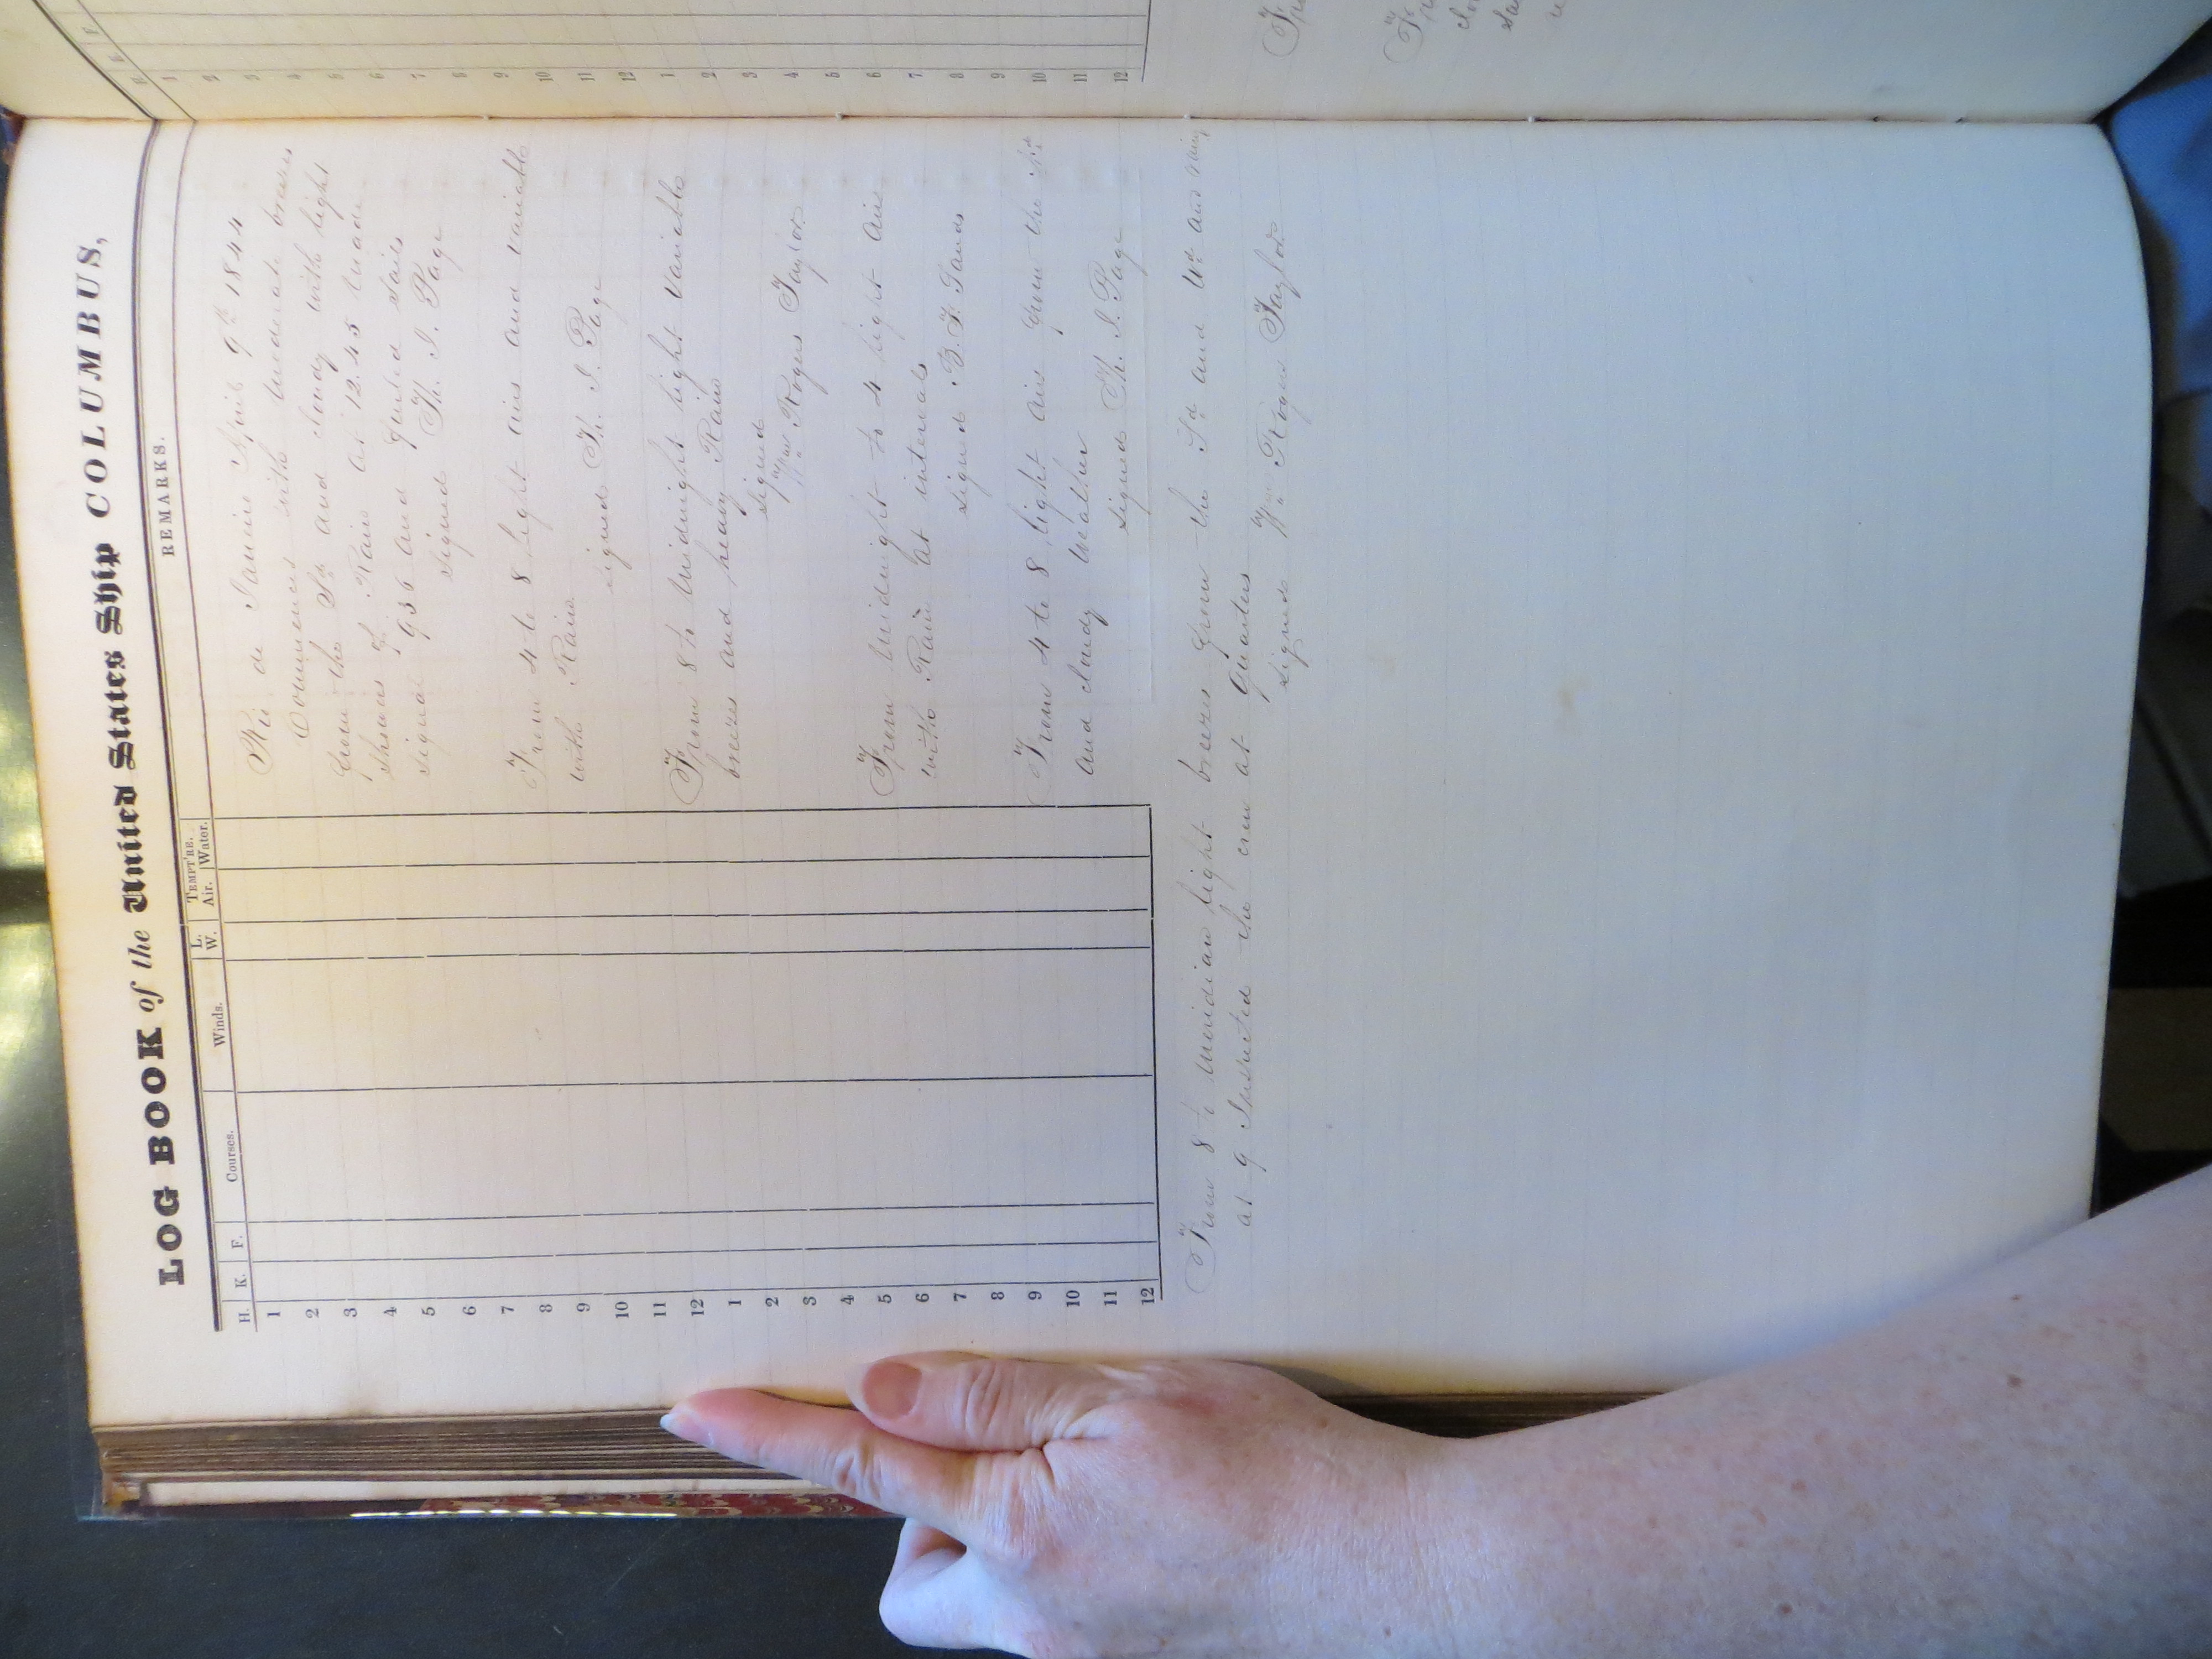 LOG BOOK of the United States Ship COLUMBUS,
REMARKS.
H. K. F. Courses. Winds. L. W. TEMPT'RE. Air. Water.
1
2
3
4
5
6
7
8
9
10
11
12
1
2
3
4
5
6
7
8
9
10
11
12
Rio de Janeiro April 9th 1844
Commences with moderate breezes
from the Sd and cloudy with light
showers of Rain at 12.45 made
signal 936 and furled sails
signed Th. J. Page
From 4 to 8 light airs and variable
with Rain
signed Th. J. Page
From 8 to Midnight light variable
breezes and heavy Rain
signed
Wm Rogers Taylor
From Midnight to 4 light airs
with Rain at intervals
signed B. F. Sands
From 4 to 8 light airs from the
and cloudy weather
signed Th. J. Page
From 8 to Meridian light breezes from the Sd and Wd and
at 9 Inspected the crew at quarters
signed Wm Rogers Taylor
1
2
3
4
5
6
7
8
9
10
11
12
1
2
3
4
5
6
7
8
9
10
11
12